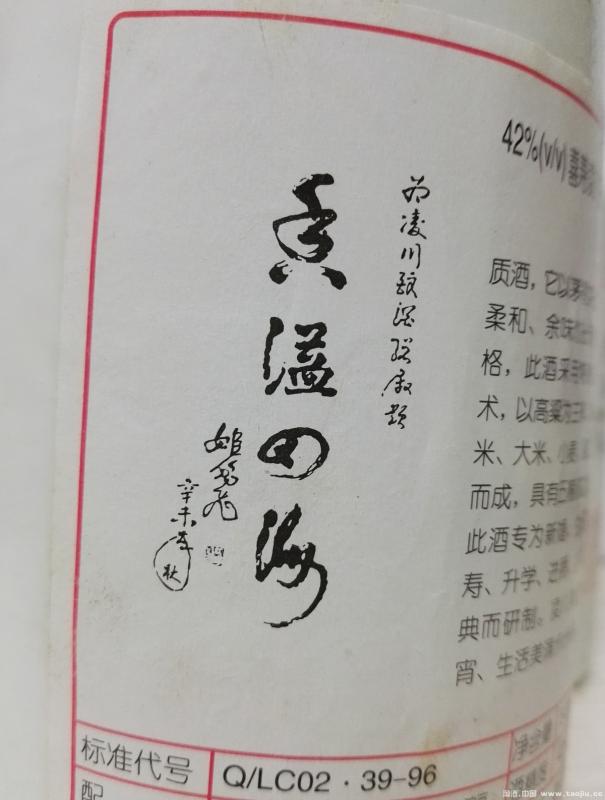 42%(v/v)
为凌川酿酒总厂题
香溢四海
辛未年秋
质酒，它以
柔和、余味
格，此酒采用
术，以高粱为主
米、大米、小麦
而成，具有
此酒专为新婚、
寿、升学、进
典而研制。
宵、生活美满
标准代号 Q/LC02·39-96 净含量
配
淘酒.中国 www.taojiu.cc